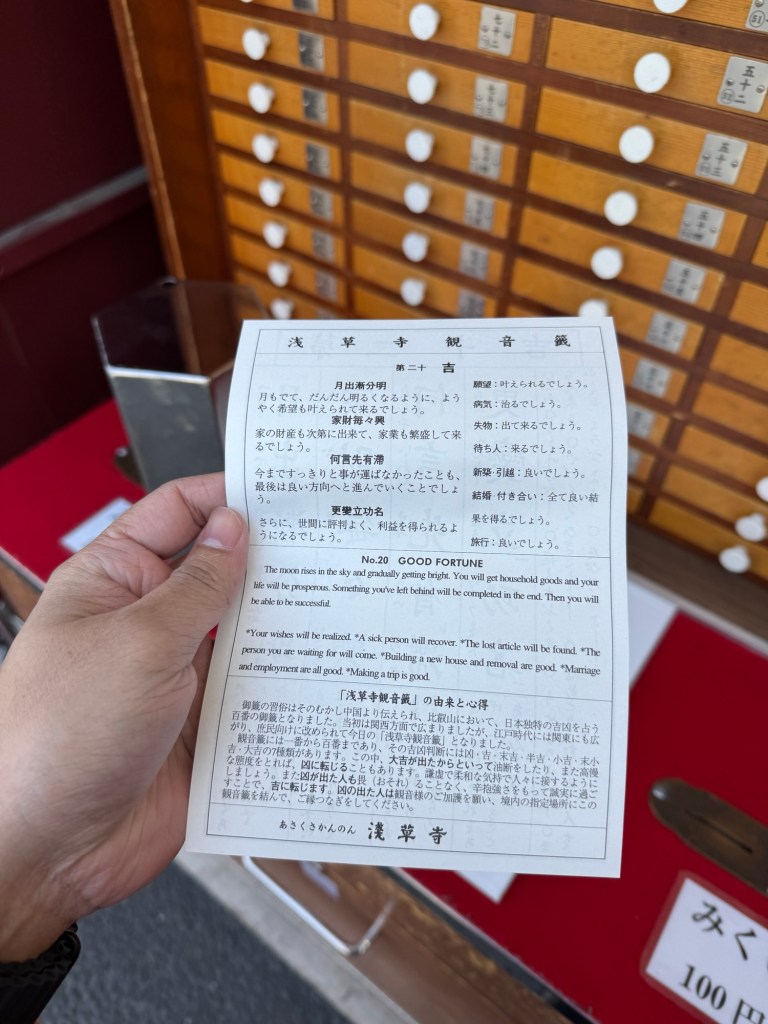 浅草寺観音籤
第二十 吉
月出漸分明
月もでて、だんだん明るくなるように、よう
やく希望も叶えられて来るでしょう。
家財毎々興
家の財産も次第に出来て、家業も繁盛して来
るでしょう。
何言先有滞
今まですっきりと事が運ばなかったことも、
最後は良い方向へと進んでいくことでしょ
う。
更變立功名
さらに、世間に評判よく、利益を得られるよ
うになるでしょう。
願望：叶えられるでしょう。
病気：治るでしょう。
失物：出て来るでしょう。
待ち人：来るでしょう。
新築・引越：良いでしょう。
結婚・付き合い：全て良い結
果を得るでしょう。
旅行：良いでしょう。
No.20 GOOD FORTUNE
The moon rises in the sky and gradually getting bright. You will get household goods and your
life will be prosperous. Something you've left behind will be completed in the end. Then you will
be able to be successful.
*Your wishes will be realized. *A sick person will recover. *The lost article will be found. *The
person you are waiting for will come. *Building a new house and removal are good. *Marriage
and employment are all good. *Making a trip is good.
「浅草寺観音籤」の由来と心得
御籤の習俗はそのむかし中国より伝えられ、比叡山において、日本独特の吉凶を占う
百番の御籤となりました。当初は関西方面で広まりましたが、江戸時代には関東にも広
がり、庶民向けに改められて今日の「浅草寺観音籤」となりました。
観音籤には一番から百番まであり、その吉凶判断には凶・吉・末吉・半吉・小吉・末小
吉・大吉の7種類があります。この中、大吉が出たからといって油断をしたり、また高慢
な態度をとれば、凶に転じることもあります。謙虚で柔和な気持で人々に接するように
しましょう。また凶が出た人も畏（おそれ）ることなく、辛抱強さをもって誠実に過ご
すことで、吉に転じます。凶の出た人は観音様のご加護を願い、境内の指定場所にこの
観音籤を結んで、ご縁つなぎをしてください。
あさくさかんのん 淺草寺
五十二
五十三
五十四
七十二
みく
100円